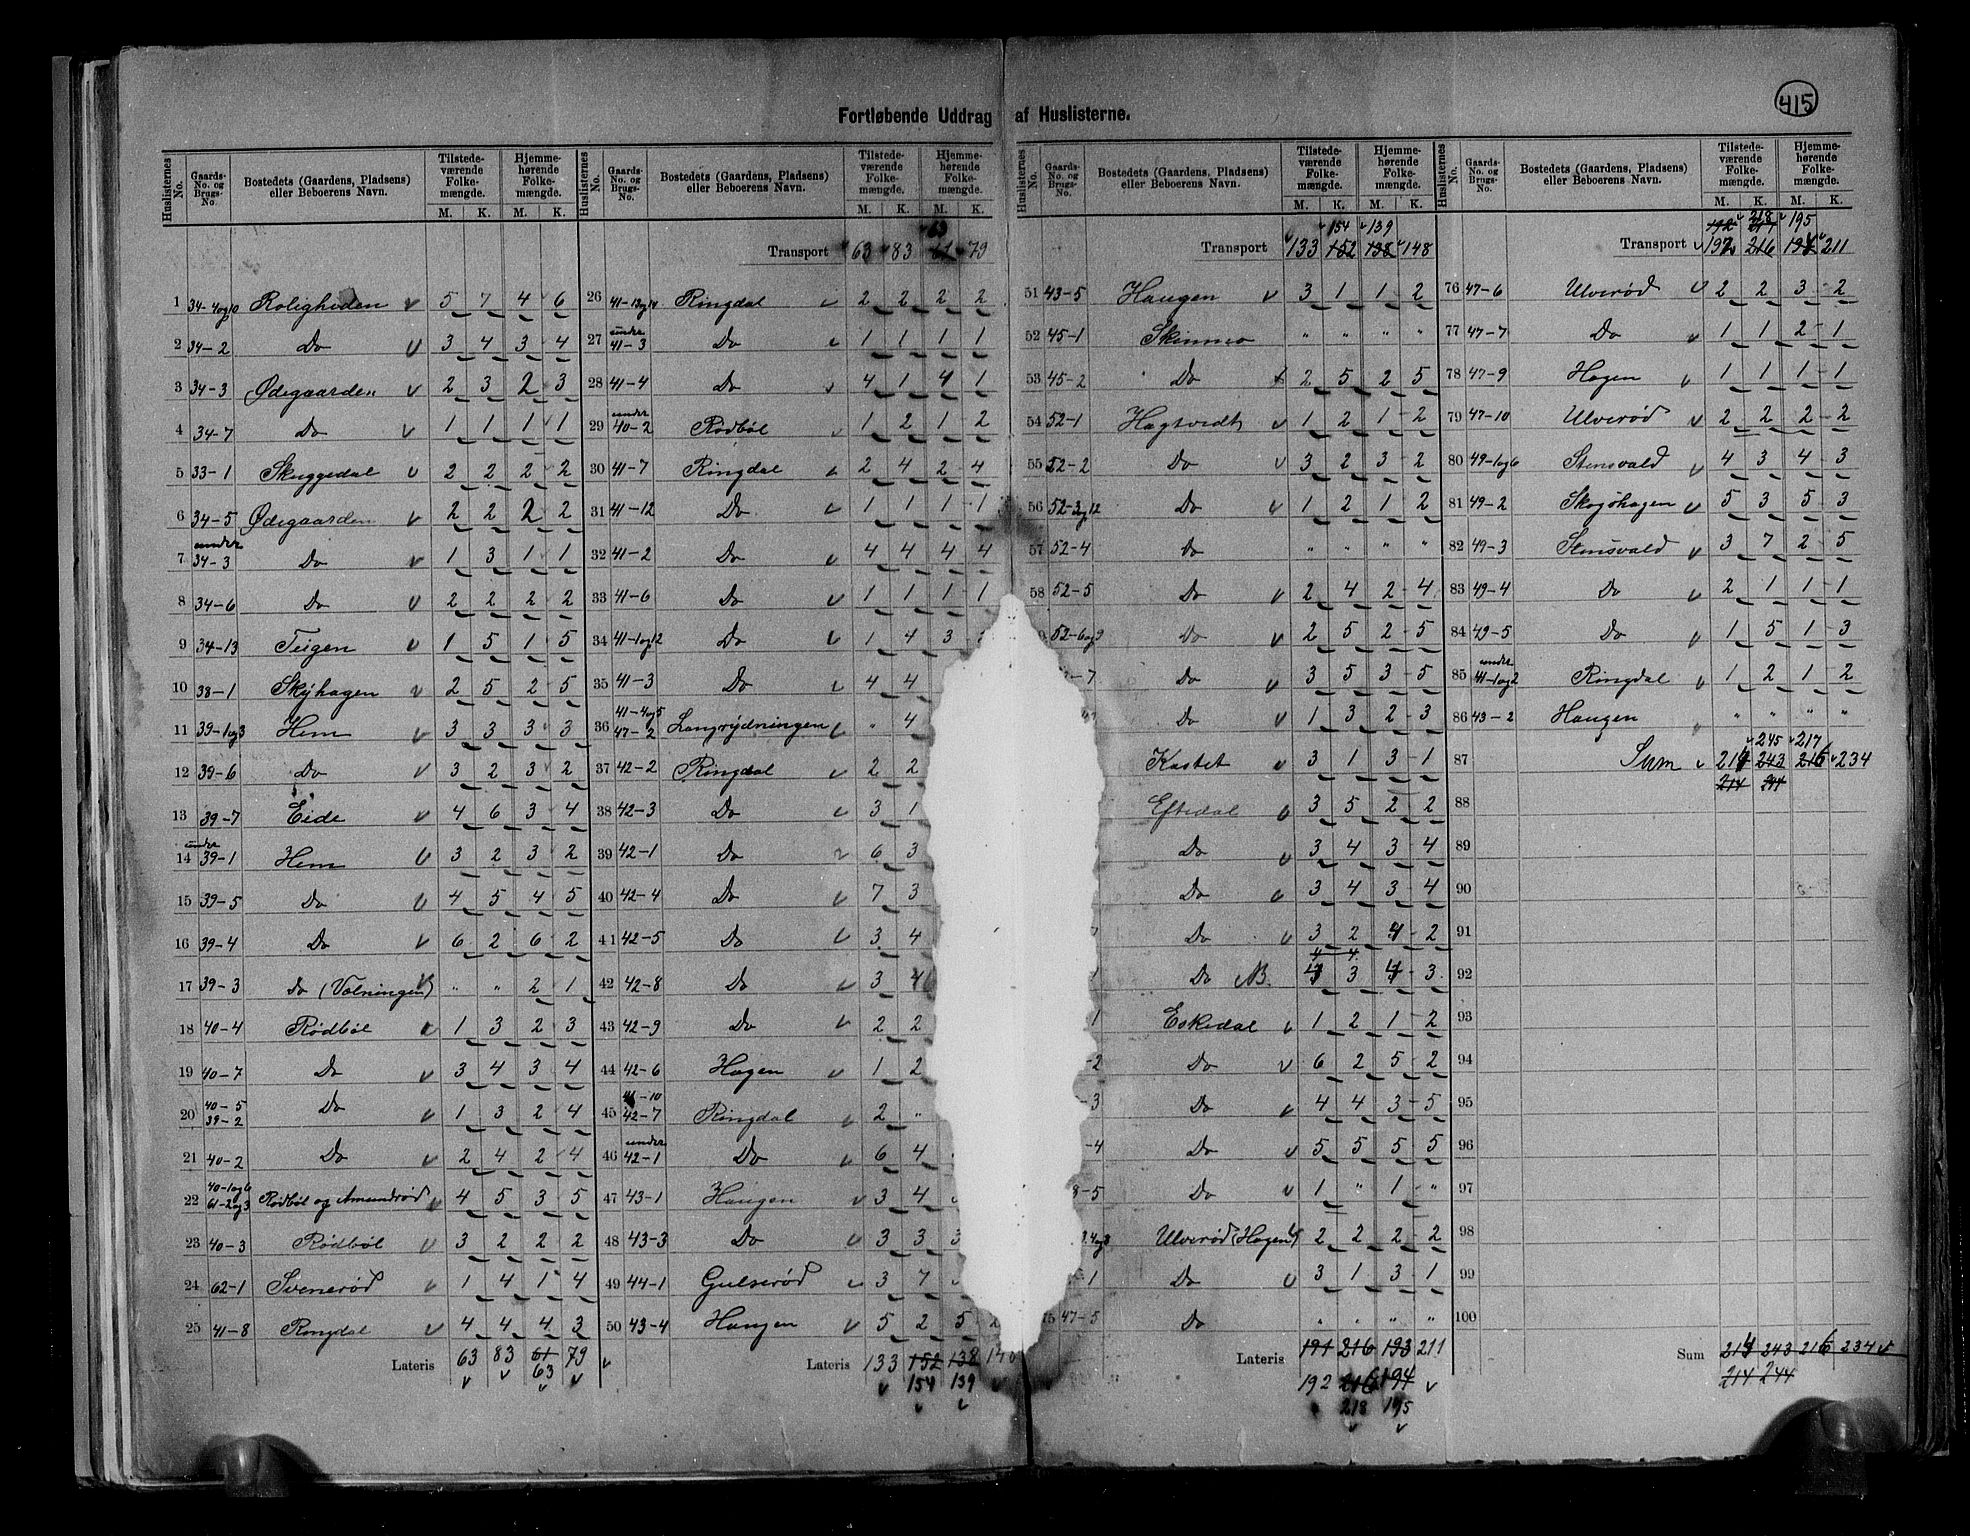 415
Fortløbende Uddrag af Huslisterne.
Huslisternes No. | Gaards-No. og Brugs-No. | Bostedets (Gaardens, Pladsens) eller Beboerens Navn. | Tilstedeværende Folkemængde. M. K. | Hjemmehørende Folkemængde. M. K.
1 34-4og10 Roligheden v 5 7 4 6
2 34-2 Do v 3 4 3 4
3 34-3 Ødegaarden v 2 3 2 3
4 34-7 Do v 1 1 1 1
5 33-1 Skuggedal v 2 2 2 2
6 34-5 Ødegaarden v 2 2 2 2
7 under 34-3 Do v 1 3 1 1
8 34-6 Do v 2 2 2 2
9 34-13 Teigen v 1 5 1 5
10 38-1 Skÿhagen v 2 5 2 5
11 39-1og3 Hem v 3 3 3 3
12 39-6 Do v 3 2 3 2
13 39-7 Eide v 4 6 3 4
14 under 39-1 Hem v 3 2 3 2
15 39-5 Do v 4 5 4 5
16 39-4 Do v 6 2 6 2
17 39-3 Do (Valningen) v " " 2 1
18 40-4 Rødbøl v 1 3 2 3
19 40-7 Do v 3 4 3 4
20 40-5 39-2 Do v 1 3 2 4
21 40-2 Do v 2 4 2 4
22 40-1og6 61-2og3 Rødbøl og Amundrød v 4 5 3 5
23 40-3 Rødbøl v 3 2 2 2
24 62-1 Svenerød v 1 4 1 4
25 41-8 Ringdal v 4 4 4 3
Lateris 63 83 61 79 v
63
Huslisternes No. | Gaards-No. og Brugs-No. | Bostedets (Gaardens, Pladsens) eller Beboerens Navn. | Tilstedeværende Folkemængde. M. K. | Hjemmehørende Folkemængde. M. K.
63
Transport 63 83 61 79
26 41-13og14 Ringdal v 2 2 2 2
27 under 41-3 Do v 1 1 1 1
28 41-4 Do v 4 1 4 1
29 under 40-2 Rødbøl v 1 2 1 2
30 41-7 Ringdal v 2 4 2 4
31 41-12 Do v 1 1 1 1
32 41-2 Do v 4 4 4 4
33 41-6 Do v 1 1 1 1
34 41-1og12 Do v 1 4 3
35 41-3 Do v 4 4
36 41-4og5 47-2 Langrydningen v " 4
37 42-2 Ringdal v 2 2
38 42-3 Do v 3 1
39 42-1 Do v 6 3
40 42-4 Do v 7 3
41 42-5 Do v 3 4
42 42-8 Do v 3 4
43 42-9 Do v 2 2
44 42-6 Hagen v 1 2
45 42-7 Ringdal v 2 "
46 under 42-1 Do v 6 4
47 43-1 Haugen v 3 4
48 43-3 Do v 3 3
49 44-1 Gulserød v 3 7
50 43-4 Haugen v 5 2 5
Lateris 133 152 138
154 139
Huslisternes No. | Gaards-No. og Brugs-No. | Bostedets (Gaardens, Pladsens) eller Beboerens Navn. | Tilstedeværende Folkemængde. M. K. | Hjemmehørende Folkemængde. M. K.
154 139
Transport 133 152 138 148
51 43-5 Haugen v 3 1 1 2
52 45-1 Skinmo " " " "
53 45-2 Do 2 5 2 5
54 52-1 Hagtvedt v 1 2 1 2
55 52-2 Do v 3 2 3 2
56 52-3og12 Do v 1 2 1 2
57 52-4 Do " " " "
58 52-5 Do v 2 4 2 4
52-6og9 Do v 2 5 2 5
-7 Do v 3 5 3 5
Do v 1 3 2 3
Kastet v 3 1 3 1
Eftedal v 3 5 2 2
Do v 3 4 3 4
Do v 3 4 3 4
Do v 3 2 4 2
4 4
Do NB. 4 3 4 3
1 Eskedal v 1 2 1 2
-2 Do v 6 2 5 2
-3 Do v 4 4 3 5
-4 Do v 5 5 5 5
8-5 Do v 1 " 1 "
Ulverød (Hagen) 2 2 2 2
-1 Do v 3 1 3 1
75 47-5 Do " " " "
Lateris 191 216 193 211
192 216 194 v
218 195
Huslisternes No. | Gaards-No. og Brugs-No. | Bostedets (Gaardens, Pladsens) eller Beboerens Navn. | Tilstedeværende Folkemængde. M. K. | Hjemmehørende Folkemængde. M. K.
218 195
192 217
Transport v 192 216 194 211
76 47-6 Ulverød v 2 2 3 2
77 47-7 Do v 1 1 2 1
78 47-9 Hagen v 1 1 1 1
79 47-10 Ulverød v 2 2 2 2
80 49-1og6 Stensvald v 4 3 4 3
81 49-2 Skogshagen v 5 3 5 3
82 49-3 Stensvald v 3 7 2 5
83 49-4 Do v 2 1 1 1
84 49-5 Do v 1 5 1 3
85 under 41-1og2 Ringdal v 1 2 1 2
86 43-2 Haugen " " " "
245 217
87 Sum v 214 243 216 234
214 244
88
89
90
91
92
93
94
95
96
97
98
99
100
Sum 214 243 216 234 v
214 244